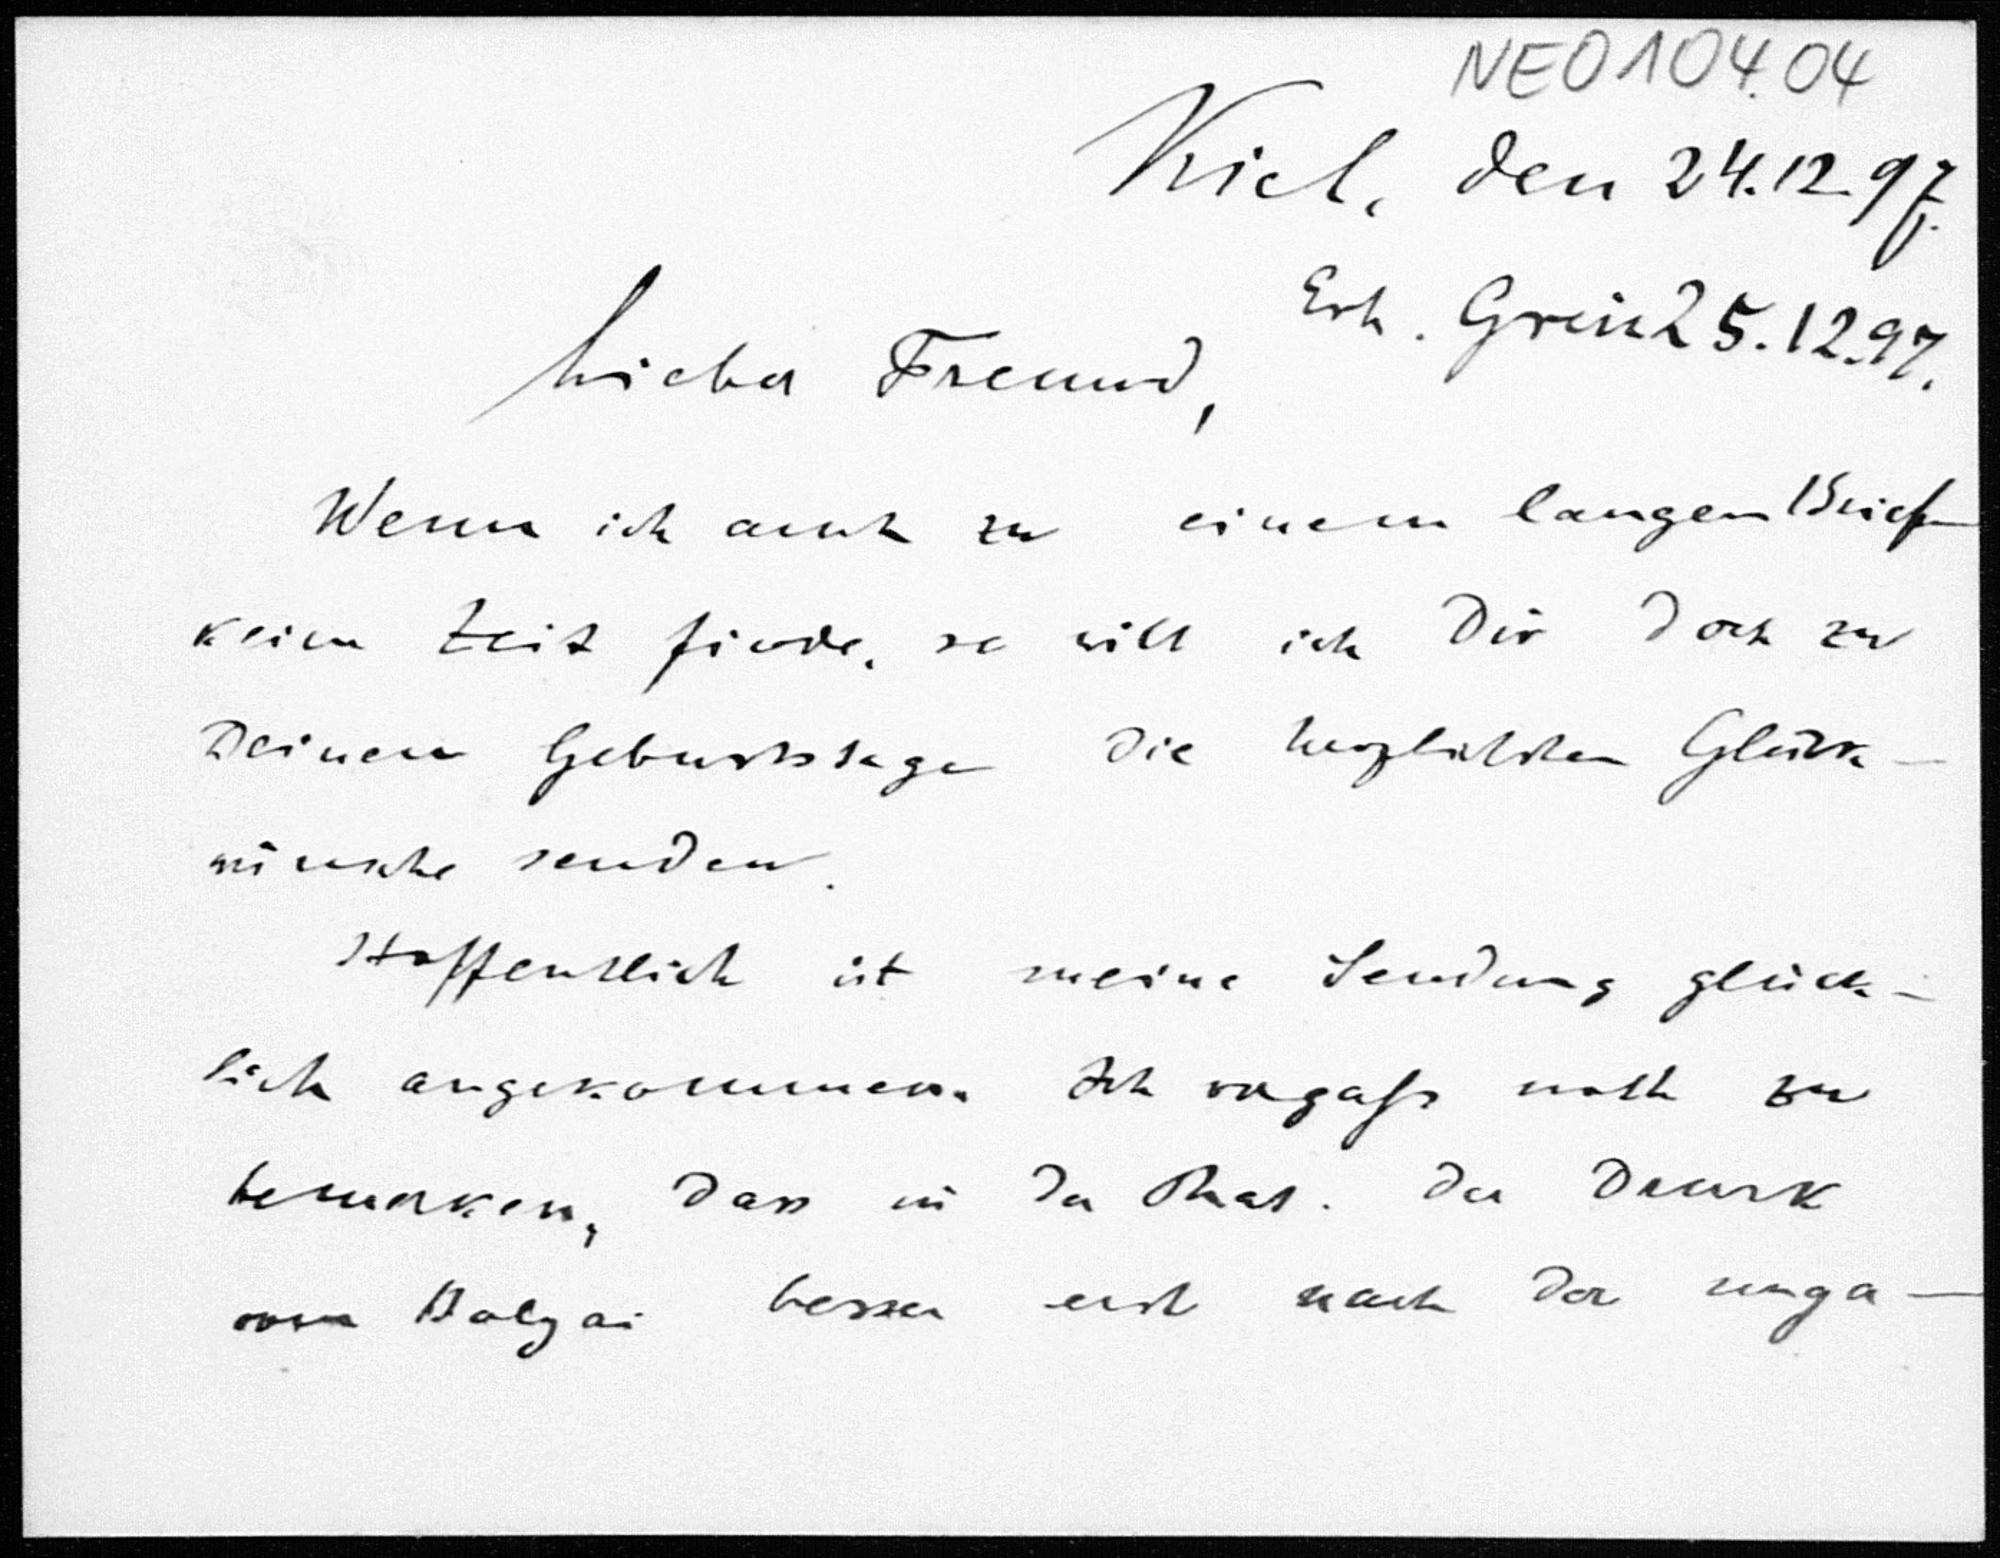 NEO104.04
Kiel, den 24.12.97.
Erh. Greiz 25.12.97.
Lieber Freund,
Wenn ich auch zu einem langen Briefe
keine Zeit finde, so will ich Dir doch zu
Deinem Geburtstage die herzlichsten Glück-
wünsche senden.
Hoffentlich ist meine Sendung glück-
lich angekommen. Ich vergaß noch zu
bemerken, dass in der der Druck
von besser erst nach der unga-